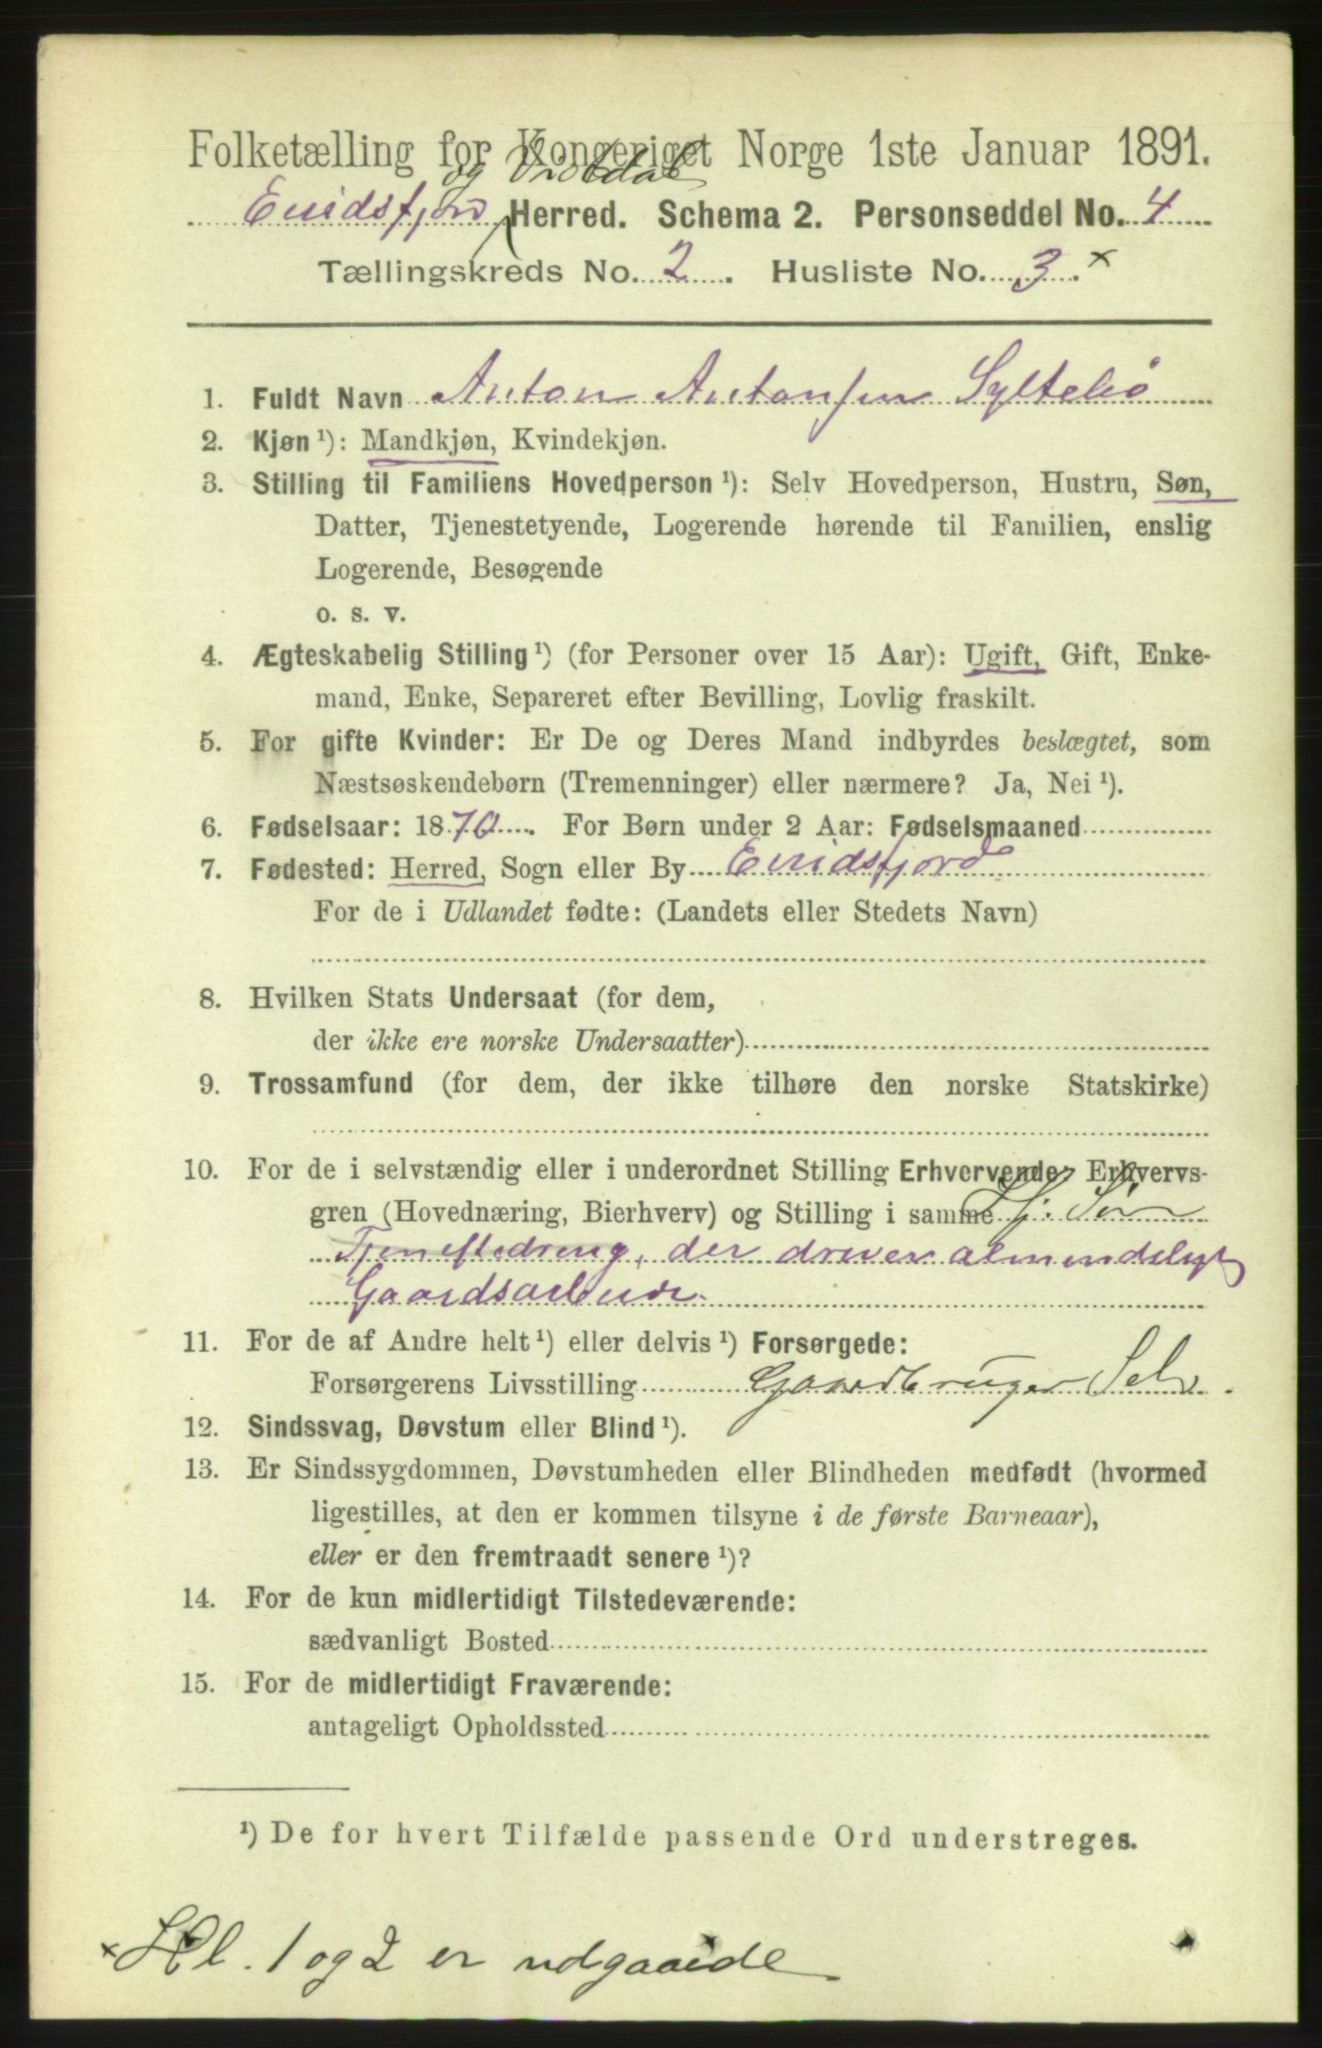 Folketælling for Kongeriget Norge 1ste Januar 1891.
og Vistdal
Eridsfjord Herred. Schema 2. Personseddel No. 4
Tællingskreds No. 2. Husliste No. 3. x
1. Fuldt Navn Anton Antonsen Syltebø
2. Kjøn ¹): Mandkjøn, Kvindekjøn.
3. Stilling til Familiens Hovedperson ¹): Selv Hovedperson, Hustru, Søn,
Datter, Tjenestetyende, Logerende hørende til Familien, enslig
Logerende, Besøgende
o. s. v.
4. Ægteskabelig Stilling ¹) (for Personer over 15 Aar): Ugift, Gift, Enke-
mand, Enke, Separeret efter Bevilling, Lovlig fraskilt.
5. For gifte Kvinder: Er De og Deres Mand indbyrdes beslægtet, som
Næstsøskendebørn (Tremenninger) eller nærmere? Ja, Nei ¹).
6. Fødselsaar: 1870. For Børn under 2 Aar: Fødselsmaaned
7. Fødested: Herred, Sogn eller By Eridsfjord
For de i Udlandet fødte: (Landets eller Stedets Navn)
8. Hvilken Stats Undersaat (for dem,
der ikke ere norske Undersaatter)
9. Trossamfund (for dem, der ikke tilhøre den norske Statskirke)
10. For de i selvstændig eller i underordnet Stilling Erhvervende: Erhvervs-
gren (Hovednæring, Bierhverv) og Stilling i samme Hj. Søn
Tjenestedreng, der driver almindeligt
Gaardsarbeide.
11. For de af Andre helt ¹) eller delvis ¹) Forsørgede:
Forsørgerens Livsstilling Gaardbruger Selv.
12. Sindssvag, Døvstum eller Blind ¹).
13. Er Sindssygdommen, Døvstumheden eller Blindheden medfødt (hvormed
ligestilles, at den er kommen tilsyne i de første Barneaar),
eller er den fremtraadt senere ¹)?
14. For de kun midlertidigt Tilstedeværende:
sædvanligt Bosted
15. For de midlertidigt Fraværende:
antageligt Opholdssted
¹) De for hvert Tilfælde passende Ord understreges.
x Hl. 1 og 2 er udgaaede